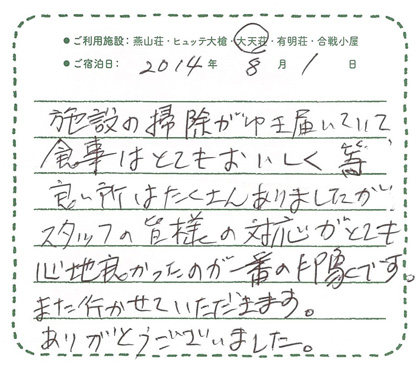 ●ご利用施設：燕山荘・ヒュッテ大槍・大天荘・有明荘・合戦小屋
●ご宿泊日： 2014 年 8 月 1 日
施設の掃除がゆき届いていて
食事はとてもおいしく 等、
良い所はたくさんありましたが
スタッフの皆様の対応がとても
心地良かったのが一番の印象です。
また行かせていただきます。
ありがとうございました。